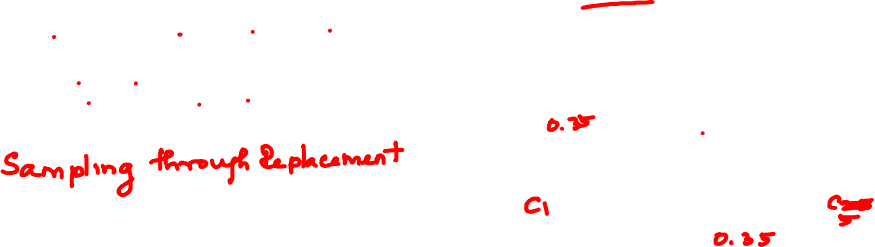 Sampling through Replacement
0.35
C1
C 5
0.35